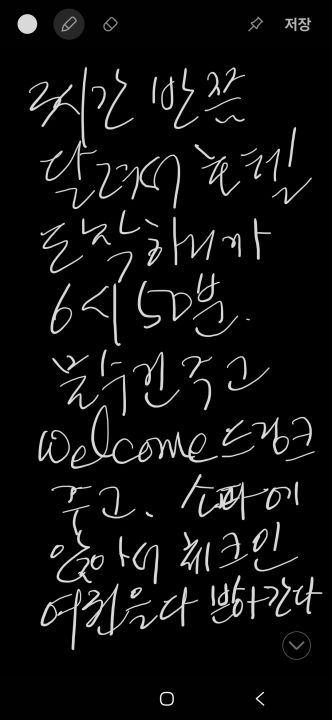 저장
2시간 반쯤
달려서 호텔
도착하니까
6시 50분.
물수건 주고
welcome 드링크
주고. 소파에
앉아서 체크인
여권을 다 받아간다